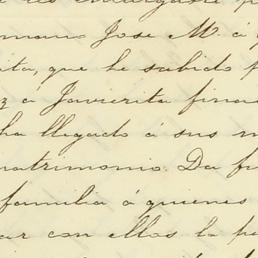 mano Jose M. a
ita, que he sabido
z á Javierita fina
ha llegado á sus m
atrimonio. Da f
familia á quienes
ar con ellos la pe